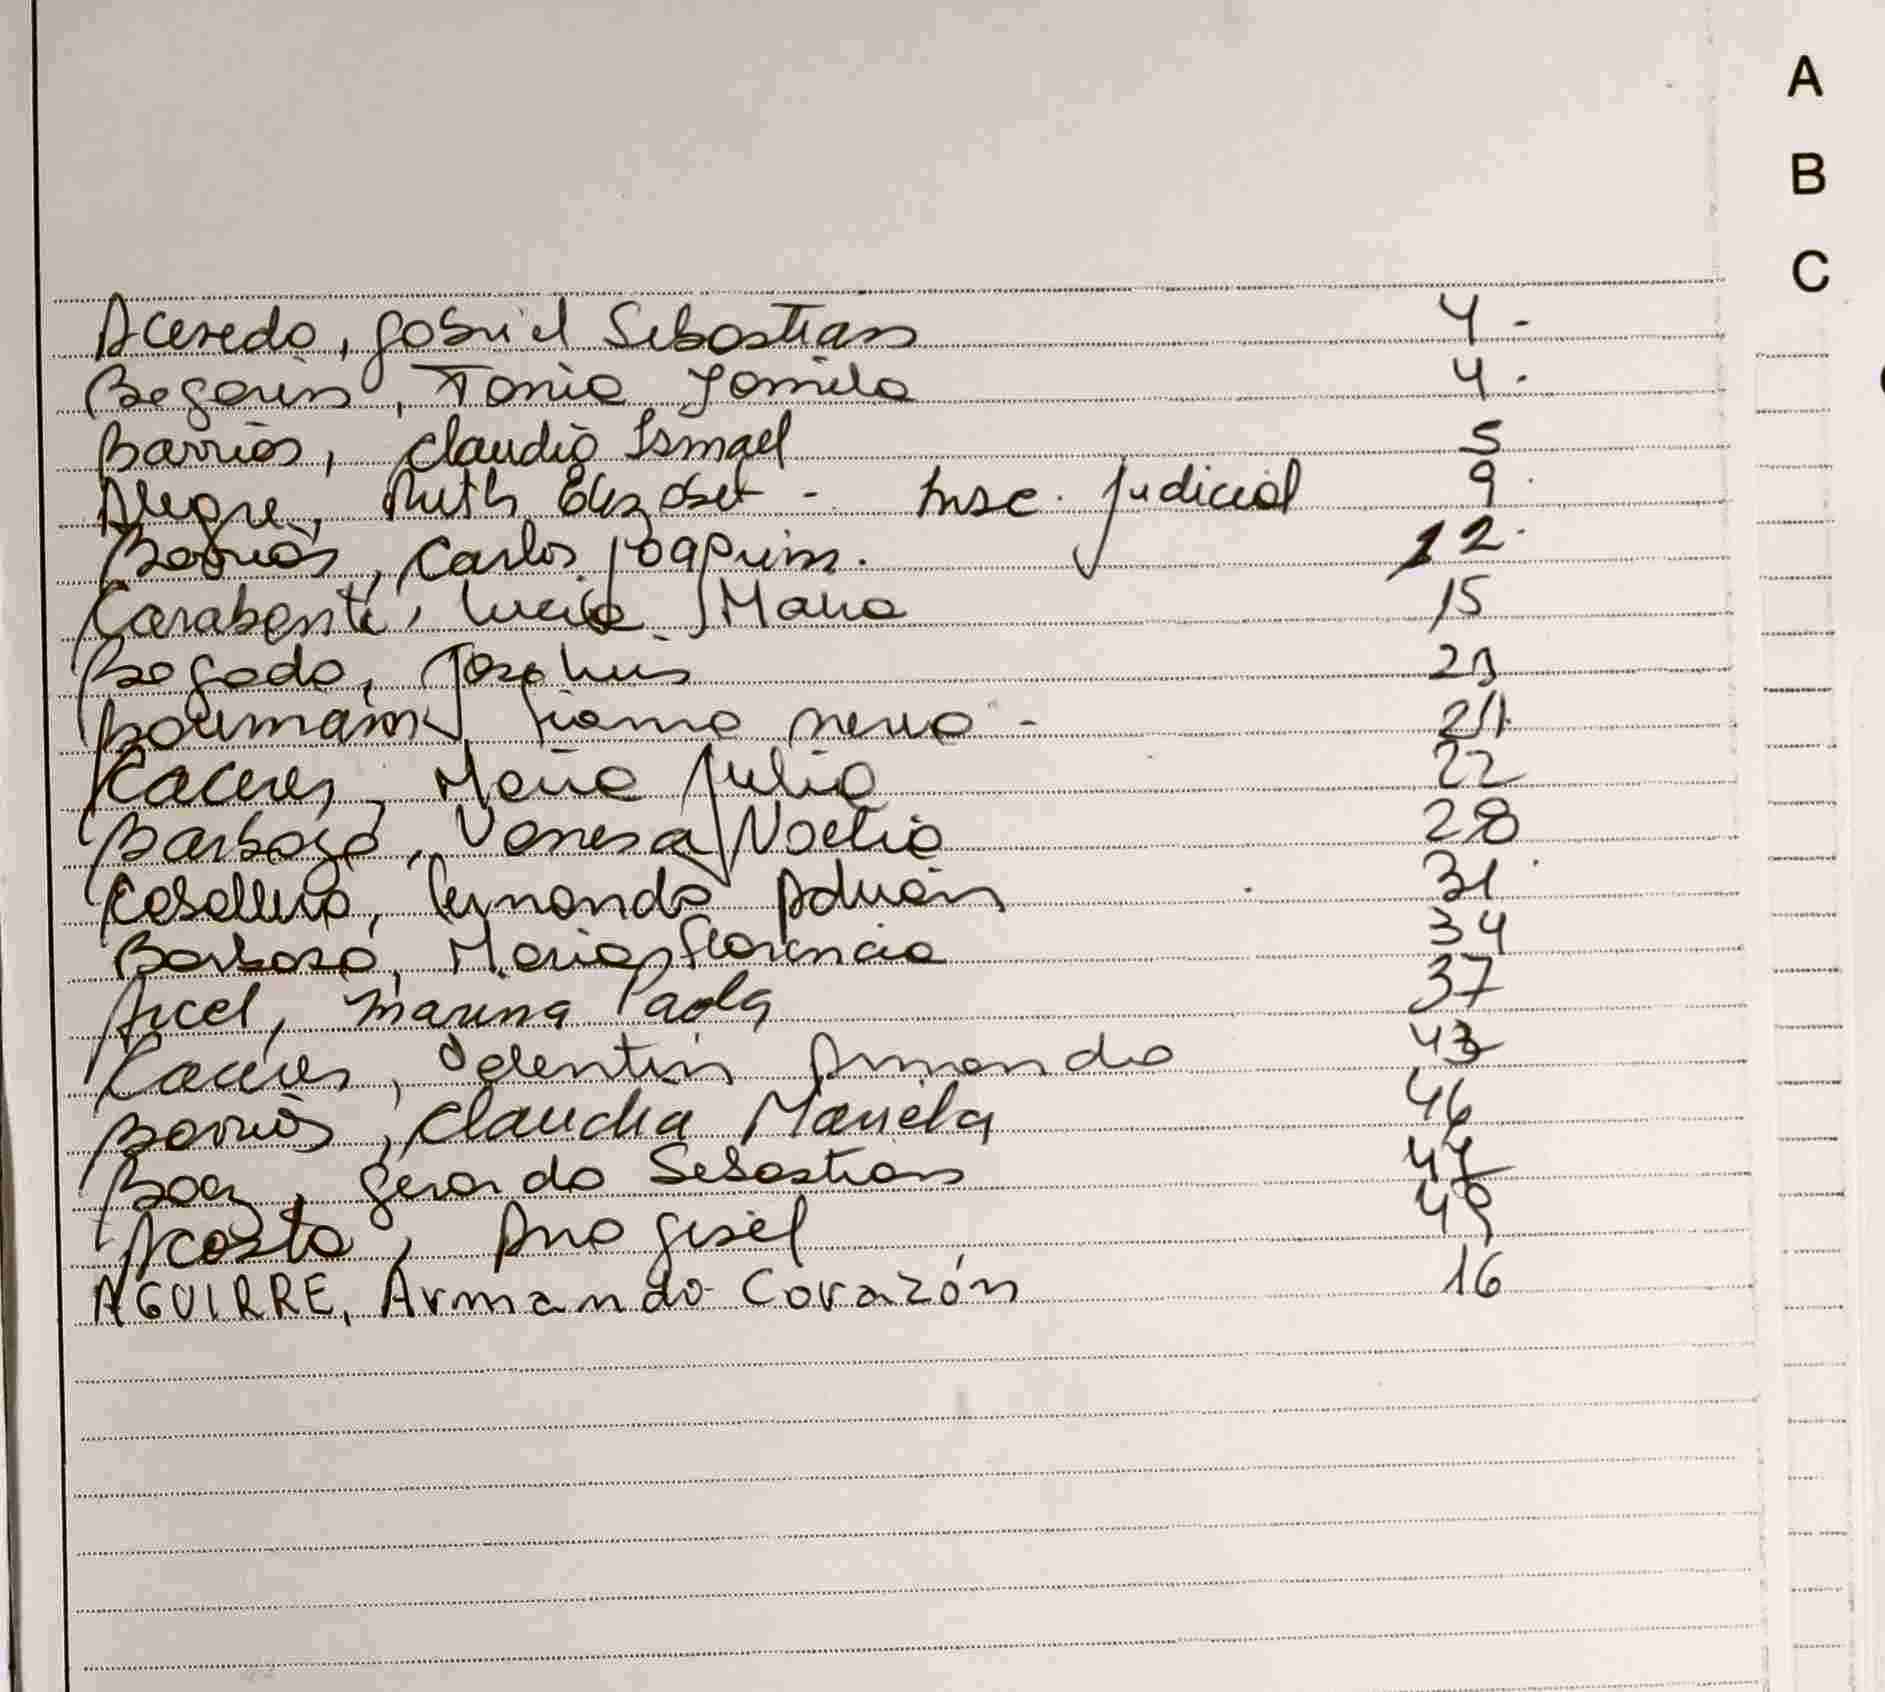 A
B
C
Acevedo, Gabriel Sebastian 4.
Begarin, Tania Yamila 4.
Barrios, Claudio Ismael 5
Alegre, Ruth Elizabet - Insc. Judicial 9
Barrios, Carlos Joaquin. 12.
Carabante, Lucia Maria 15
Bogado, Jose Luis 21
Fiama - 21
Caceres, Maria Julia 22
Barboza, Vanesa Noelia 28
Caballero, Fernando Adrián 31
Barboza, Maria Florencia 34
Arcel, Marina Paola 37
Caceres, Valentin Armando 43
Barrios, Claudia Mariela 46
Baez, Gerardo Sebastian 47
Acosta, Ana Gisel 49
AGUIRRE, Armando Corazón 16